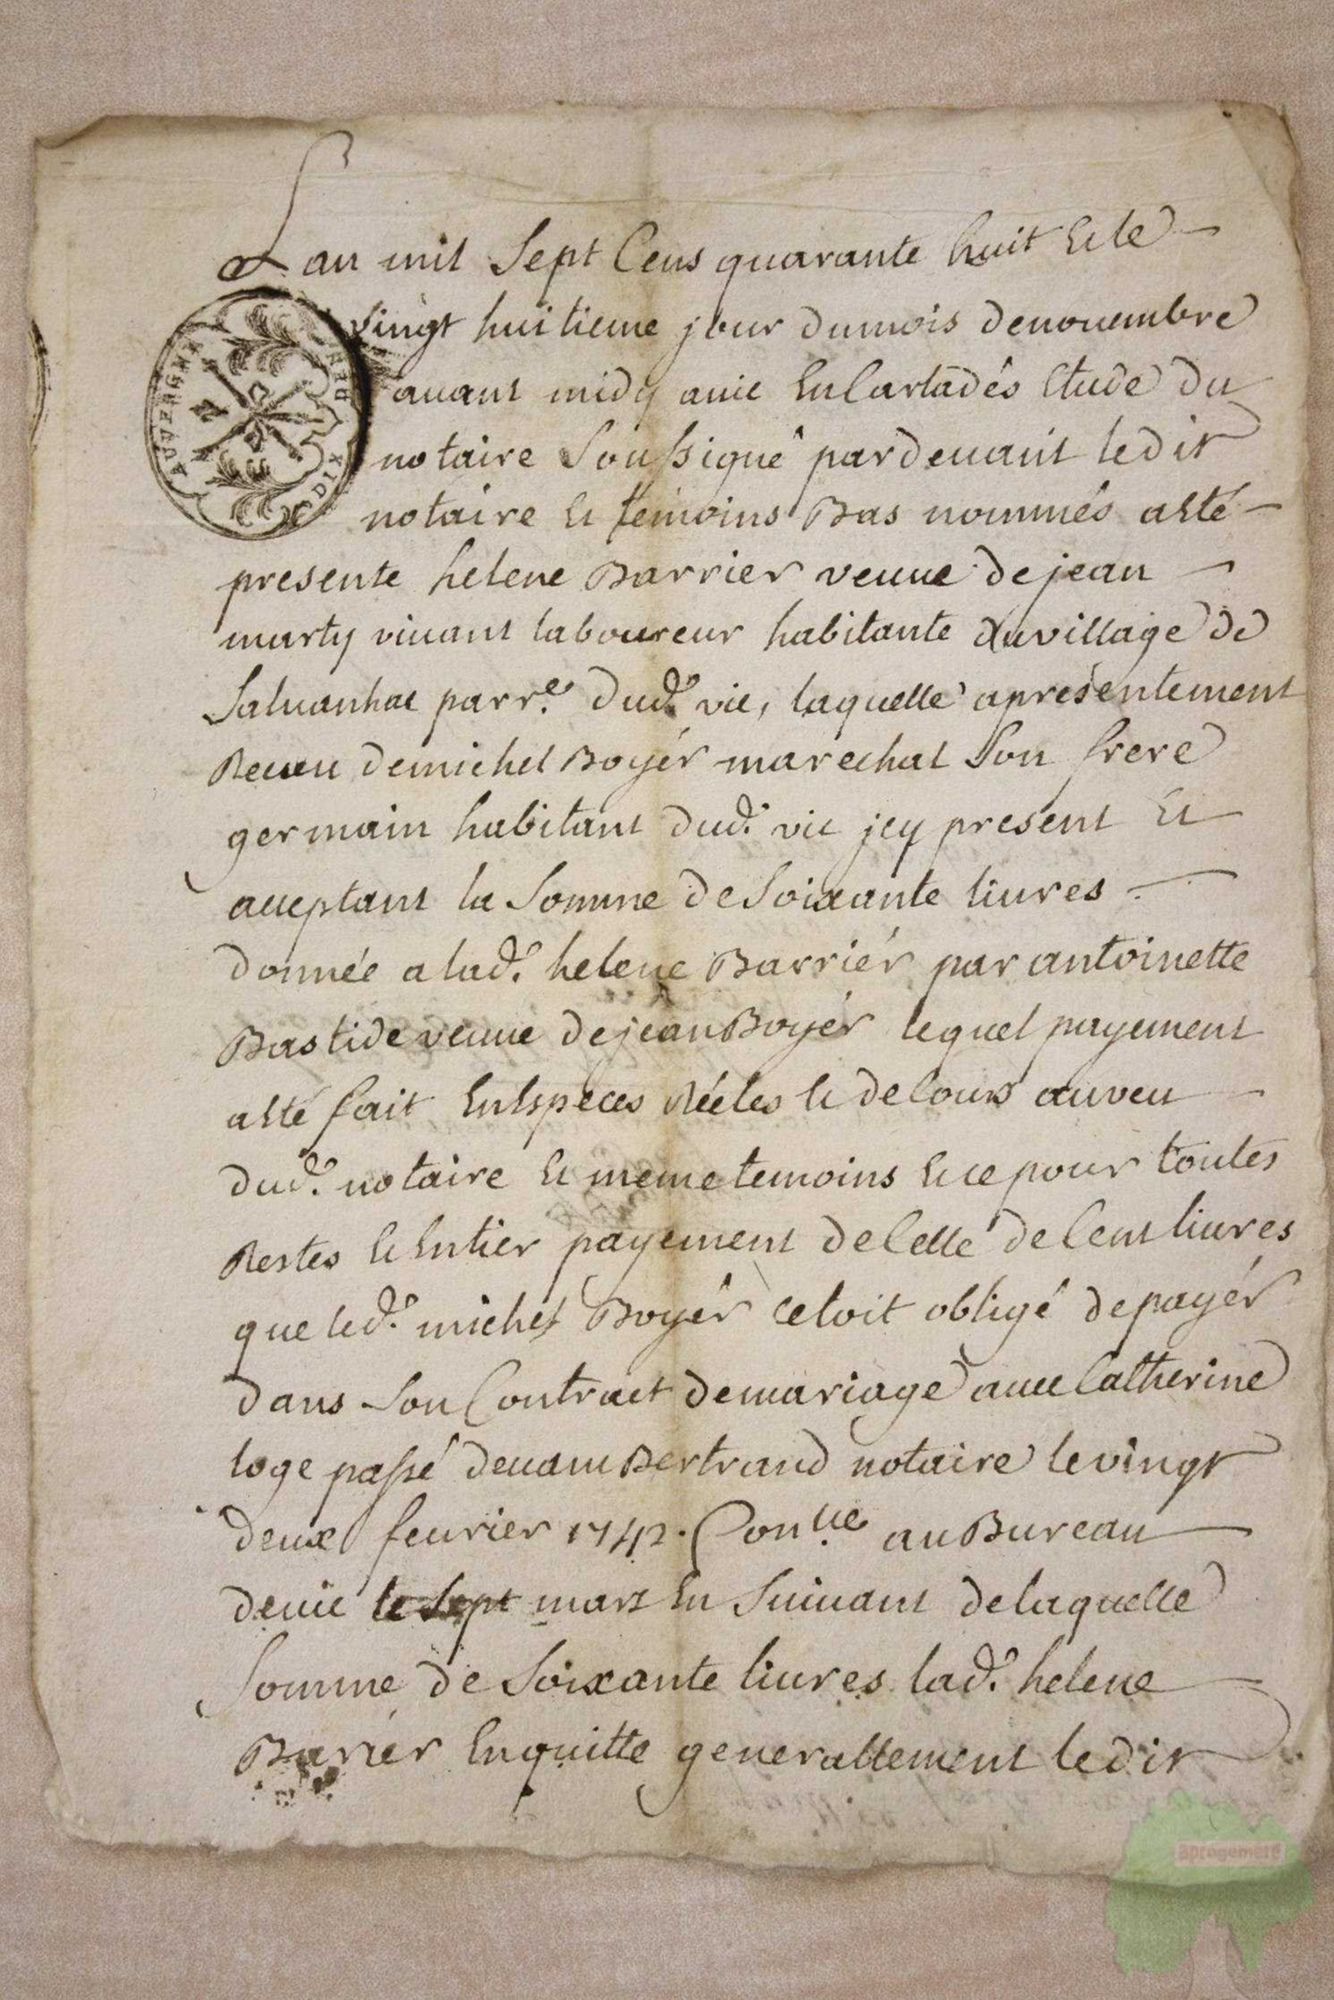 Lan mil Sept Cens quarante huit Et le
vingt huitieme jour dumois denouembre
auant midy a vic En Carladés Etude du
notaire Soussigné pardeuant ledit
notaire Et temoins Bas nommés a Eté
presente helene Barrier veuue de jean
marty viuant laboureur habitante du village de
Saluanhac parr.e dud.t vic, laquelle apresentement
Receu demichel Boyér marechal Son frere
germain habitant dud.t vic jcy present Et
acceptant la Somme de Soixante liures
donnée a lad.e helene Barriér par antoinette
Bastide veuue de jean Boyér lequel payement
a Eté fait En Especes Réeles Et de Cours au veu
dud.t notaire Et meme temoins Et ce pour toutes
Restes Et Entier payement de Celle de Cent liures
que led.t michel Boyér cetoit obligé depayér
dans Son Contract demariage auec Catherine
loge passé deuant Bertrand notaire levingt
deux feurier 1742. Con.lle au Bureau
devic le Sept mars En Suiuant delaquelle
Somme de Soixante liures lad.e helene
Bariér En quitte generallement ledit
AUVERGNE
aprogemere